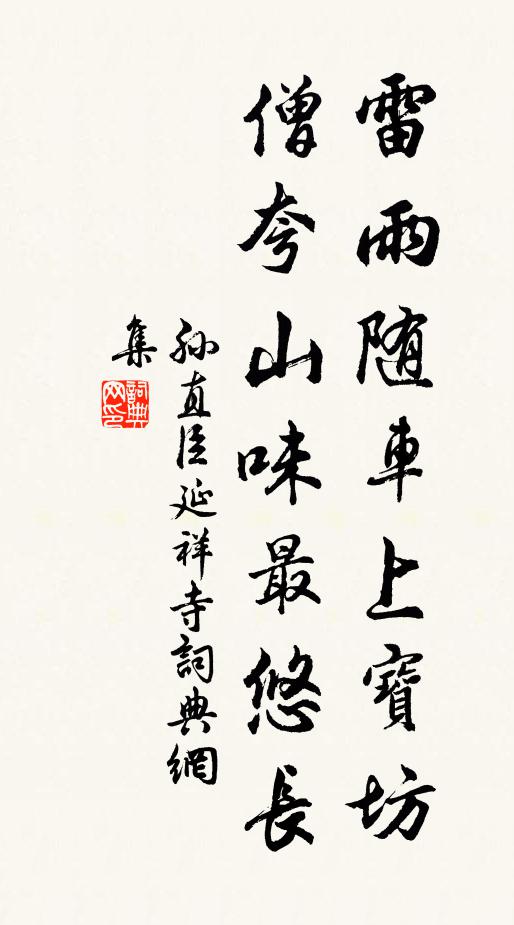 雷雨随車上寶坊
僧夸山味最悠長
孙直臣延祥寺詞典網
集
詞典网印